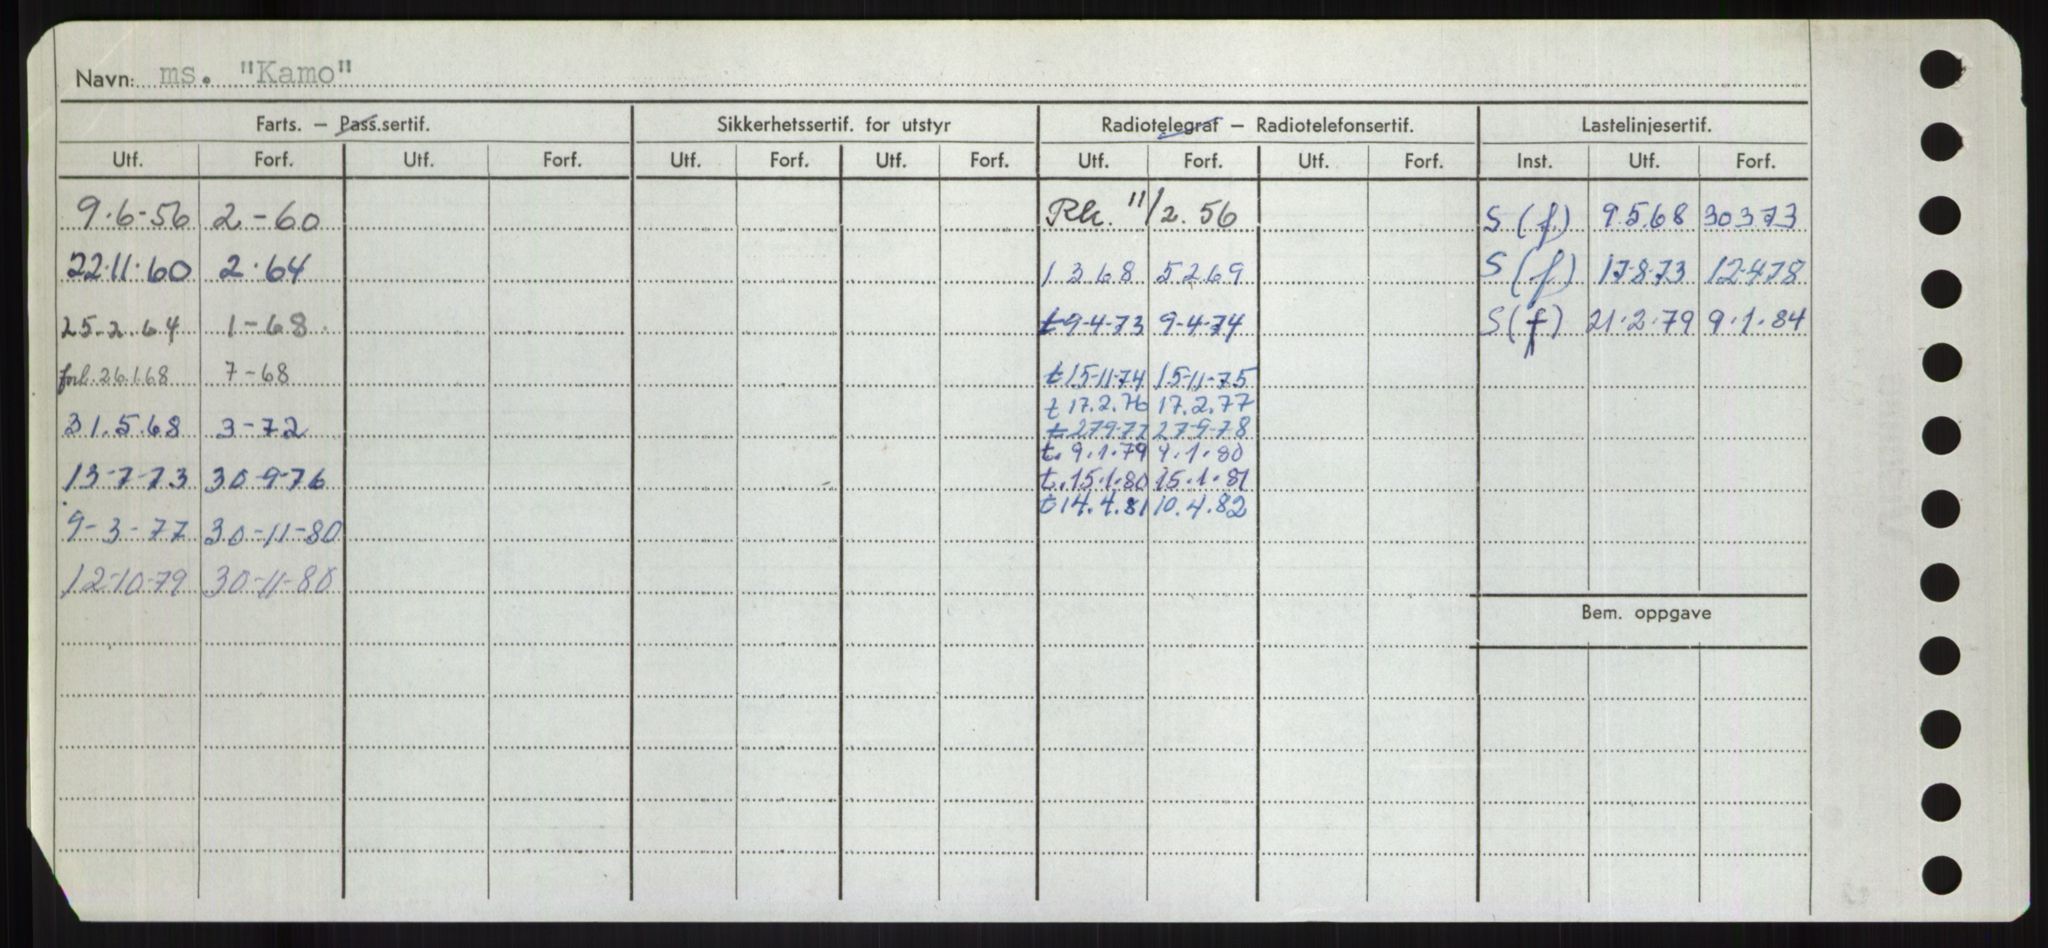 Navn: ms. "Kamo"
Farts. — Pass.sertif. Sikkerhetssertif. for utstyr Radiotelegraf — Radiotelefonsertif. Lastelinjesertif.
Utf. Forf. Utf. Forf. Utf. Forf. Utf. Forf. Utf. Forf. Utf. Forf. Inst. Utf. Forf.
9.6-56 2-60 Rk. 11/2.56 S (f) 9.5.68 30373
22.11.60 2.64 1 3 68 5269 S (f) 17-8-73 12-4-78
25.2.64 1-68 t9-4-73 9-4-74 S(f) 21.2.79 9.1.84
forl. 26.1.68 7-68 t15-11-74 15-11-75
t 17.2.76 17.2.77
31.5.68 3-72 t279-77 27-9-78
t. 9.1.79 9.1.80
13-7-73 30-9-76 t.15.1.80 15.1.81
t14.4.81 10.4.82
9-3-77 30-11-80
12-10-79 30-11-80
Bem. oppgave